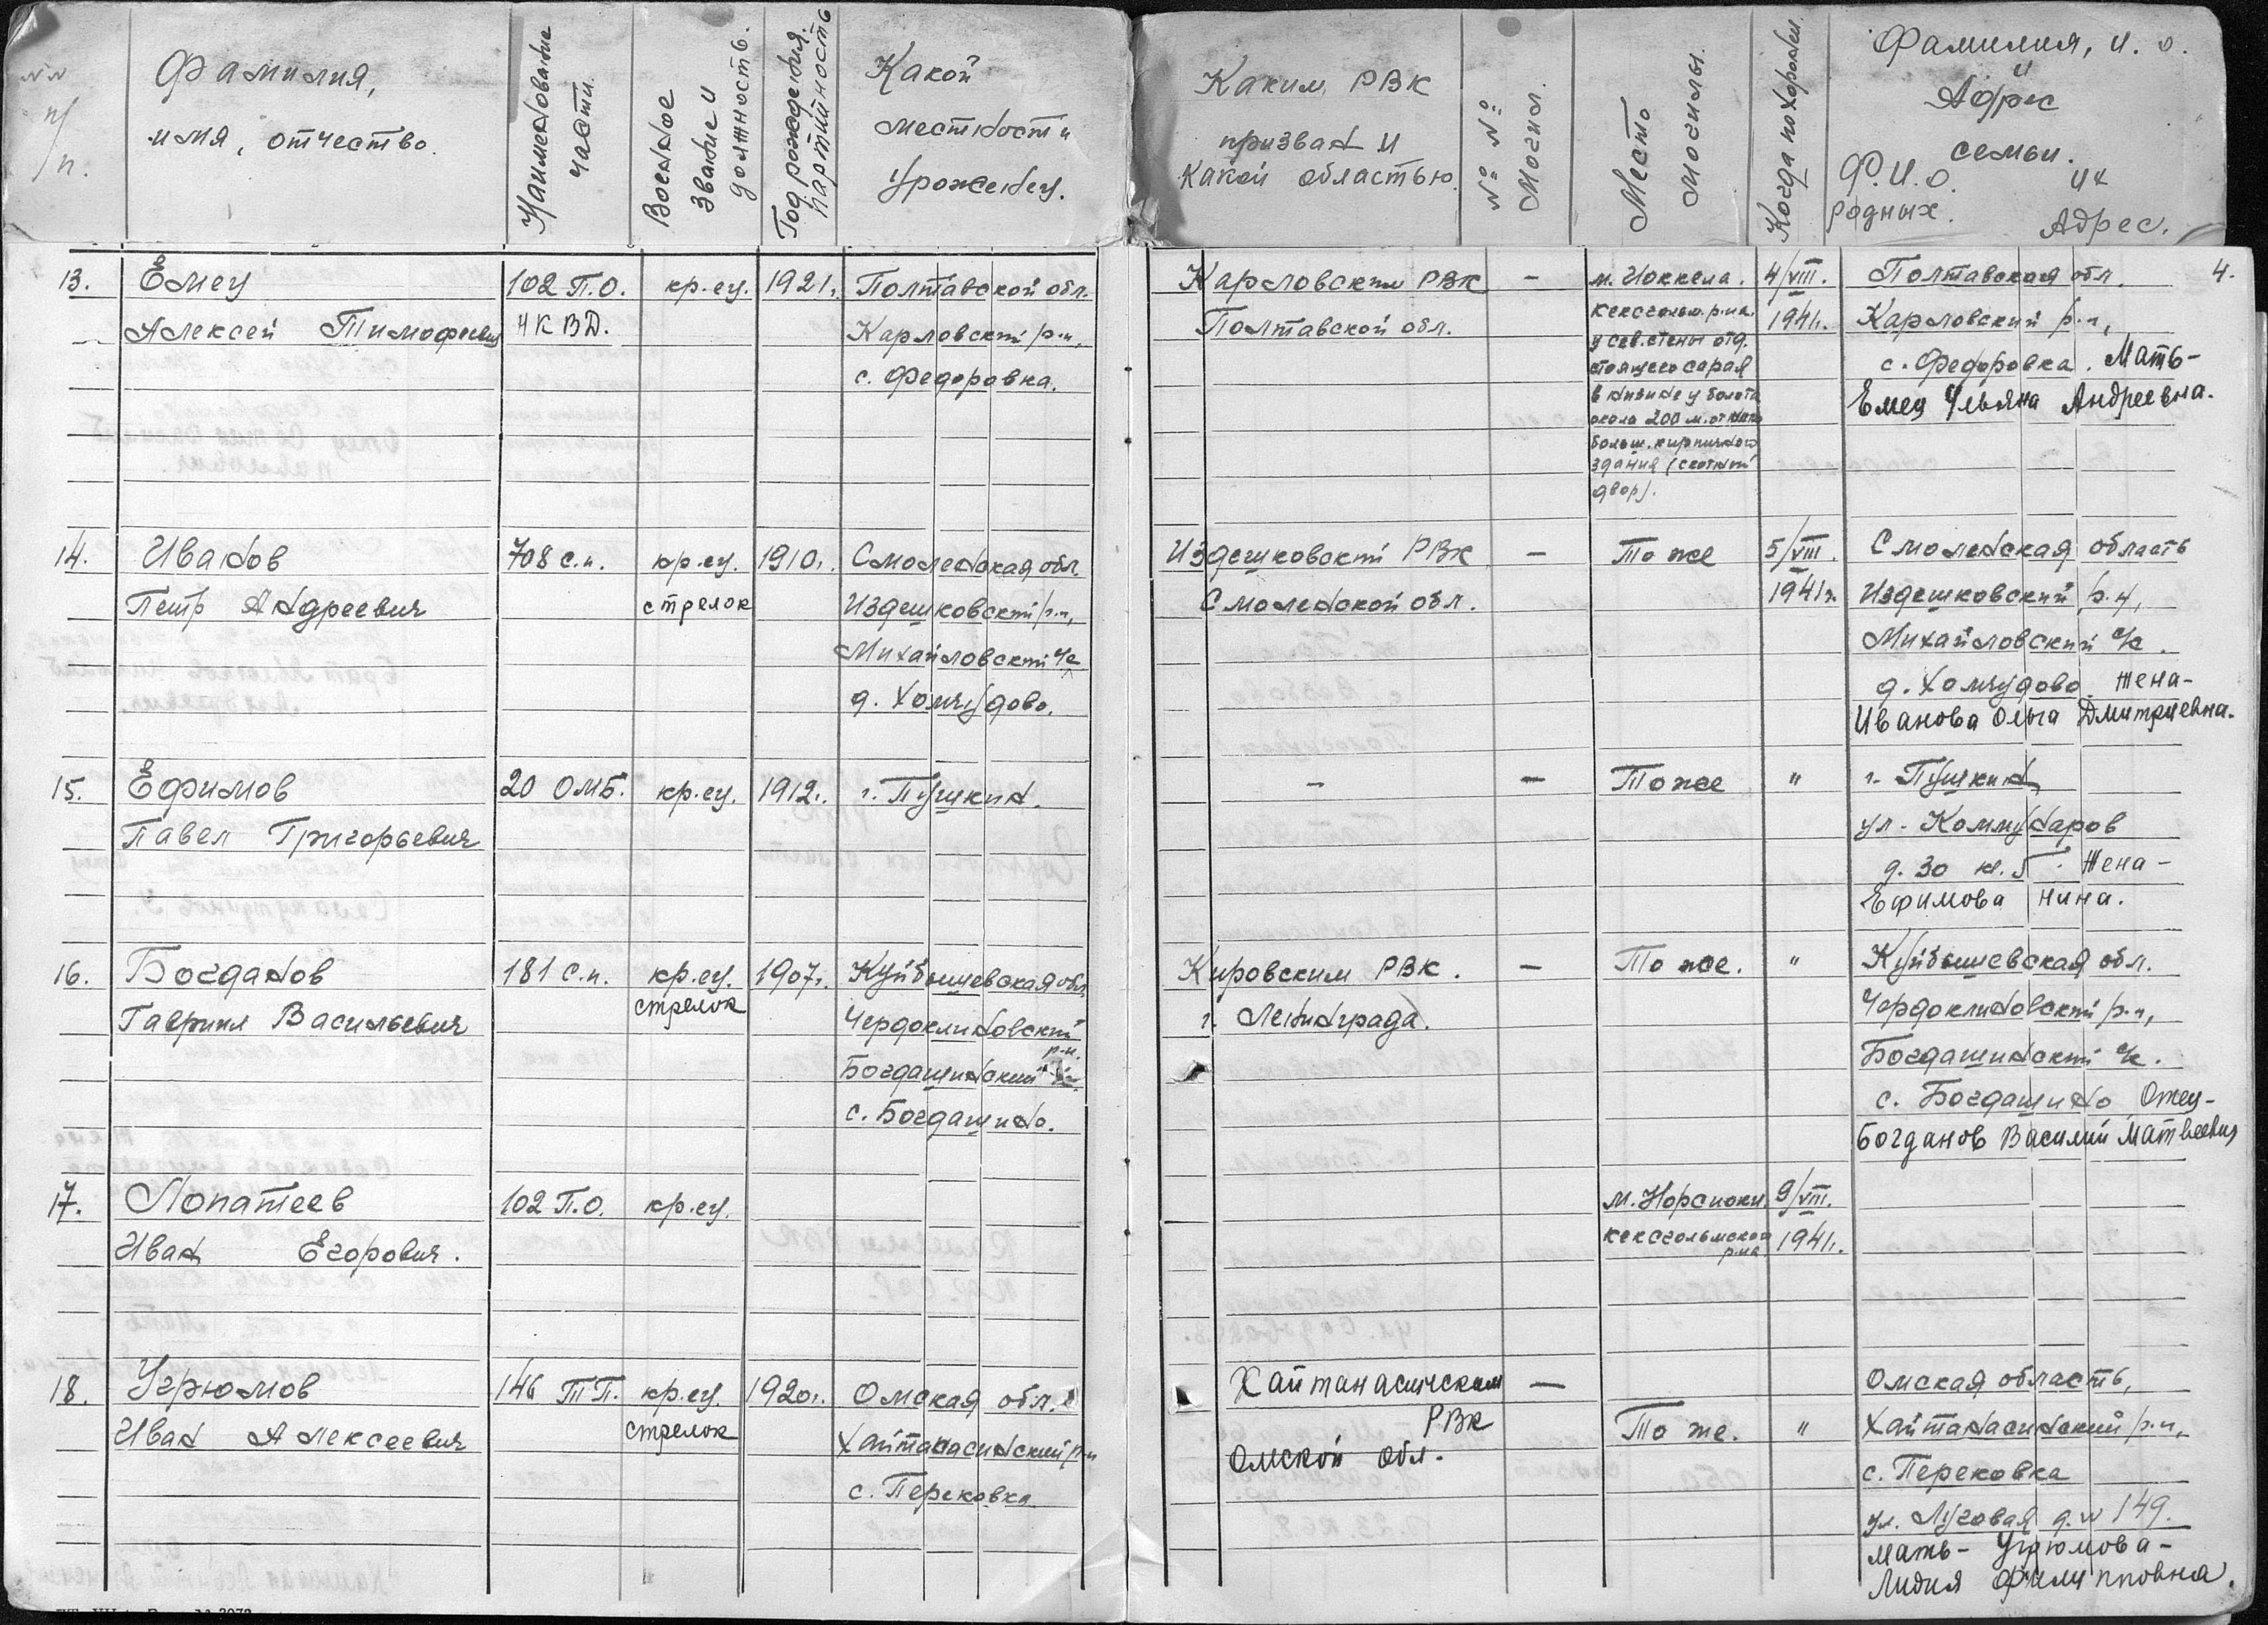 №№ п/п.
Фамилия, имя, отчество.
Наименование части.
Военное звание и должность.
Год рождения. партийность
Какой местности урожениец.
Каким РВК призван и какой областью.
№№ Могил.
Место могилы.
Когда похоронен.
Фамилия, и. о. и Адрес семьи.
Ф.И.О. родных. их Адрес.
4.
13. Емец 102 П.О. кр-ец. 1921г. Полтавской обл. Карловским РВК – м. Иоккела. 4/VIII. Полтавская обл.
Алексей Тимофеевич НКВД. Карловский р-н, Полтавской обл. Кексгольм. р-на. 1941г. Карловский р-н,
с. Федоровка. у сев. стены отд. с. Федоровка. Мать-
стоящего сарая Емец Ульяна Андреевна.
в низине у болота
около 200 м. от
больш. кирпичного
здания (скотный
двор).
14. Иванов 708 с.п. кр-ец. 1910г. Смоленская обл. Издешковский РВК – То же 5/VIII. Смоленская область
Петр Андреевич стрелок Издешковский р-н, Смоленской обл. 1941г. Издешковский р-н,
Михайловский с/с Михайловский с/с.
д. Хомчудово. д. Хомчудово. Жена-
Иванова Ольга Дмитриевна.
15. Ефимов 20 ОМБ. кр-ец. 1912г. г. Пушкин. – – То же " г. Пушкин
Павел Григорьевич ул. Коммунаров
д. 30 кв. 5. Жена-
Ефимова Нина.
16. Богданов 181 с.п. кр-ец. 1907г. Куйбышевская обл. Кировским РВК. – То же. " Куйбышевская обл.
Гавриил Васильевич стрелок Чердоклиновский р-н. г. Ленинграда. Чердоклиновский р-н,
Богдашинский Богдашинский с/с.
с. Богдашино. с. Богдашино Отец-
Богданов Василий Матвеевич
17. Лопатеев 102 П.О. кр-ец. м. Норсиоки. 9/VIII.
Иван Егорович. Кексгольмского р-на 1941г.
18. Угрюмов 146 ТП. кр-ец. 1920г. Омская обл. Хайтанасическим – Омская область,
Иван Алексеевич стрелок Хайтанасинский р-н РВК То же. " Хайтанасинский р-н,
с. Перековка Омской обл. с. Перековка
ул. Луговая д. № 149.
Мать- Угрюмова-
Лидия Филипповна.